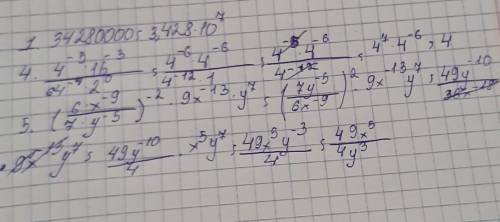 1. 34280000 = 3,428·10⁷
4. (4⁻⁵·16⁻³)/(64⁻⁴·2⁰) = (4⁻⁶·4⁻⁶)/(4⁻¹²·1) = (4⁻⁵·4⁻⁶)/4⁻¹² = 4⁷·4⁻⁶ = 4
5. ((6·x⁻⁹)/(7·y⁻⁵))⁻² · 9x⁻¹³·y⁷ = ((7y⁻⁵)/(6x⁻⁹))² · 9x⁻¹³y⁷ = 49y⁻¹⁰/36x⁻¹⁸
·9x⁻¹³y⁷ = 49y⁻¹⁰/4 · x⁵y⁷ = 49x⁵y⁻³/4 = 49x⁵/4y³